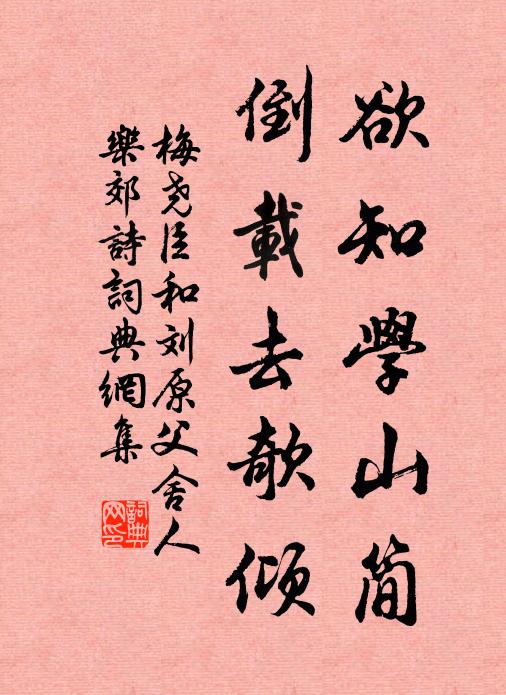 欲知學山简
倒載去欹倾
梅尧臣和刘原父舍人
樂郊詩詞典網集
詞典
网印